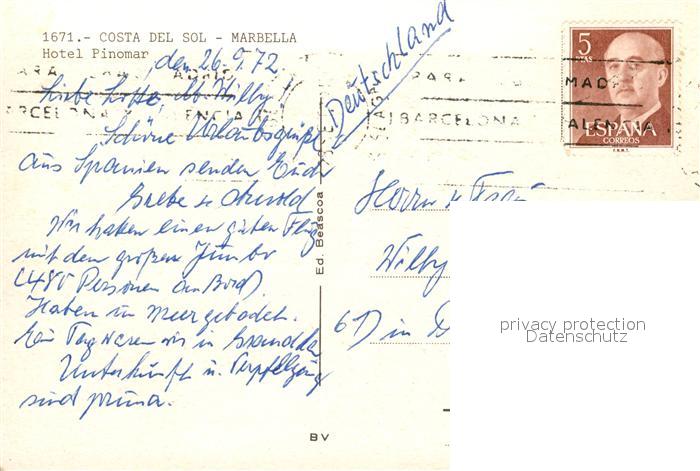 1671.- COSTA DEL SOL - MARBELLA
Hotel Pinomar
den 26.9.72.
Liebe Lotte, lb. Willy!
Schöne Urlaubsgrüße
aus Spanien senden Euch
Grete u. Arnold
Wir haben einen guten Flug
mit dem großen Jumbo
(480 Personen an Bord)
Haben im Meer gebadet.
Ein Tag waren wir in Granada
Unterkunft u. Verpflegung
sind prima.
Deutschland
Ed. Beascoa
BV
5
PTAS
ESPAÑA
CORREOS
F.N.M.T.
PARA
MADRID
BARCELONA
VALENCIA
Herrn u. Frau
Willy
61) in D
privacy protection
Datenschutz